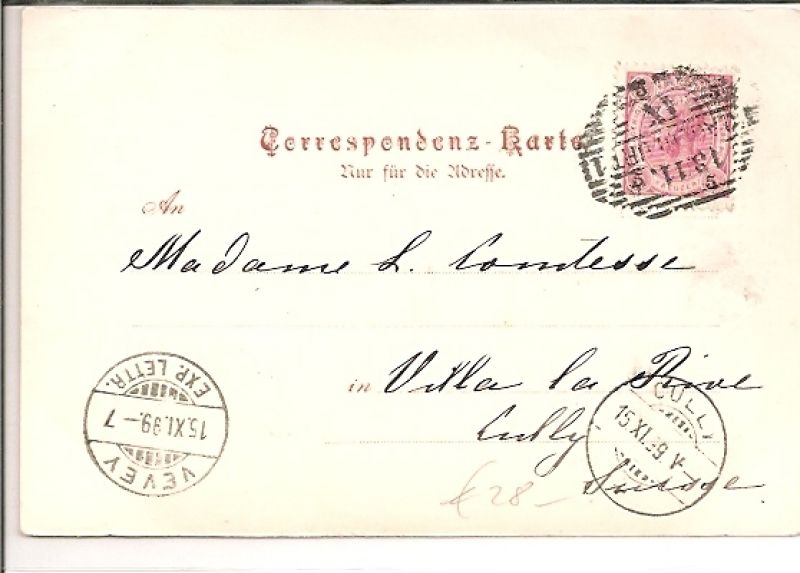 Correspondenz-Karte
Nur für die Adresse.
An
Madame L. Comtesse
in Villa la Rive
Cully
Suisse
€ 28-
VEVEY
15.XI.99.-7
EXP. LETTR.
CULLY
15.XI.99.V
13.11.
XI